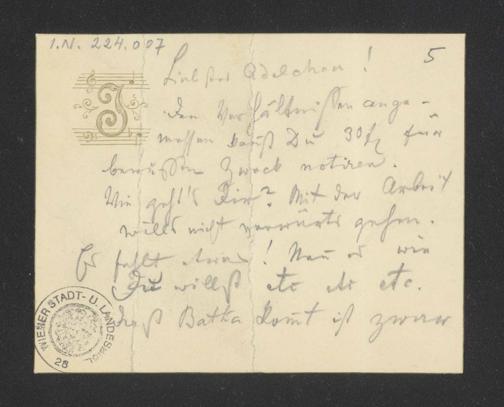 I.N. 224.007
5
J.
Liebster Adelchen!
den Verhältnißen ange-
messen kannst Du 30 fl für
bewußten Zweck notiren.
Wie geht's Dir? Mit der Arbeit
will's nicht vorwärts gehen.
Es fehlt etwas! Nau od wie
Du willst etc etc etc.
daß Batka kom̄t ist zwar
WIENER STADT- U. LANDESBIBL.
28